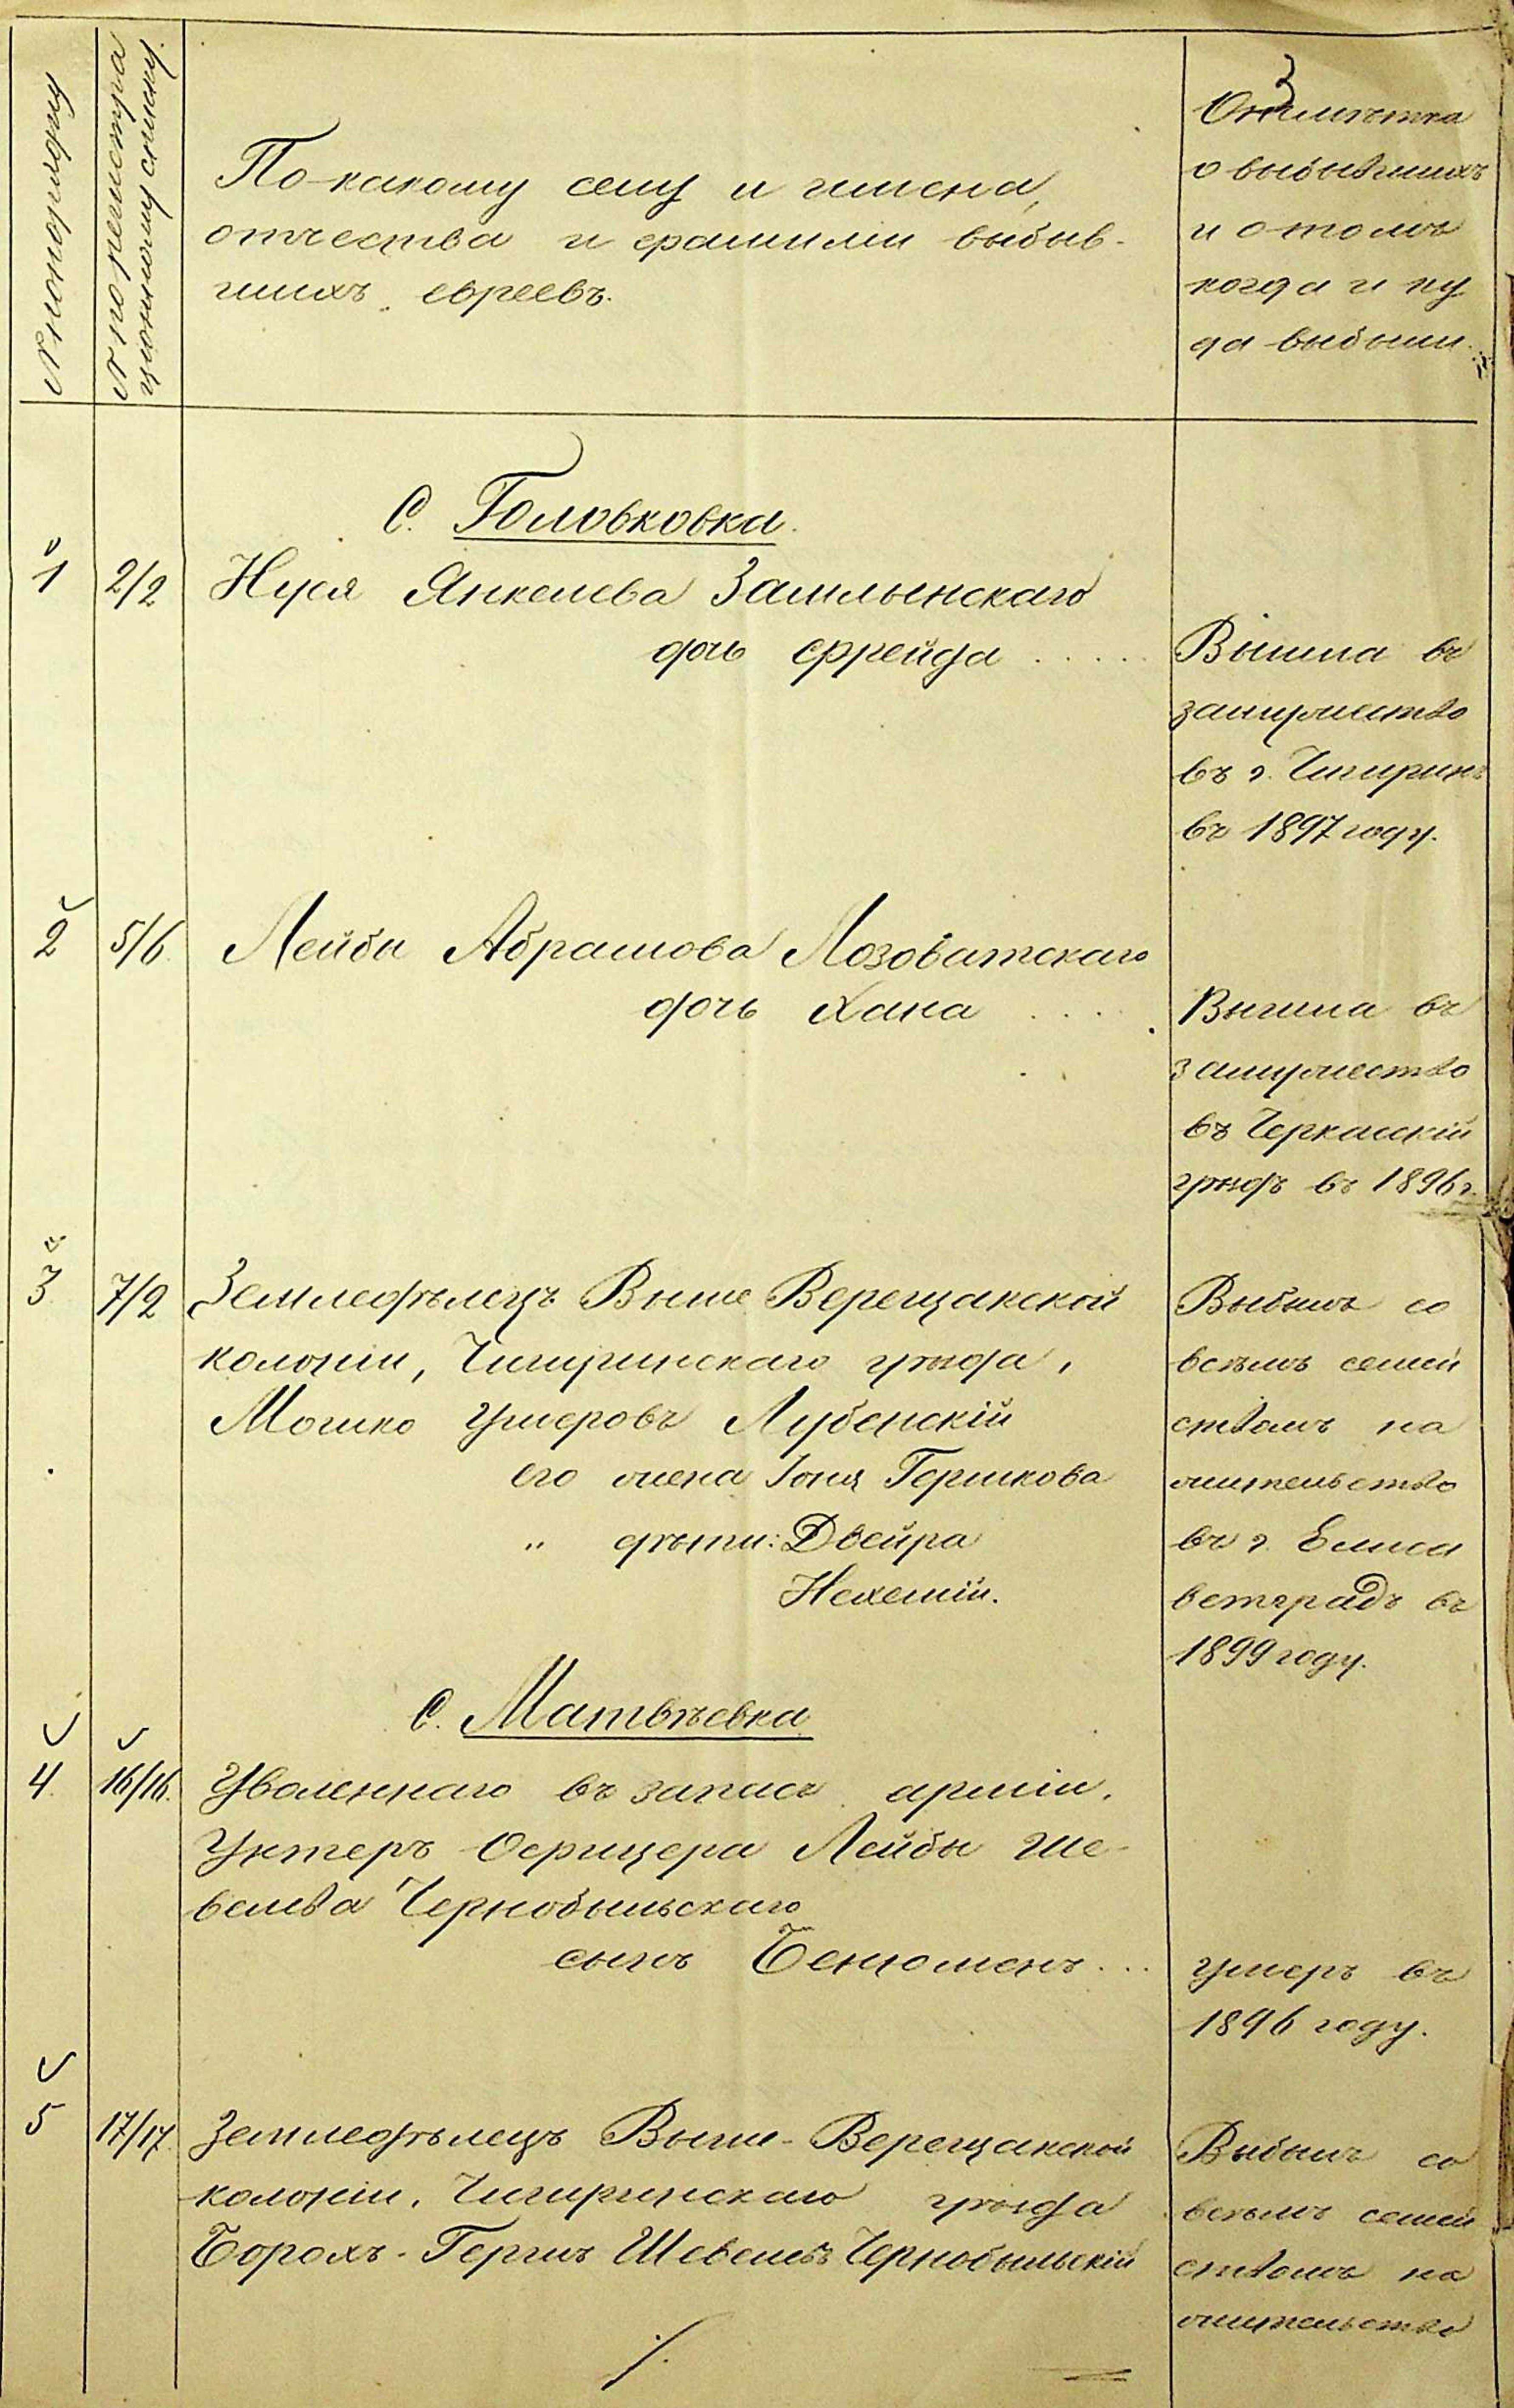 3
№ по порядку
№ по регистра
ціонному списку.
По какому селу и имена,
отчества и фамиліи выбыв-
шихъ евреевъ.
Отмѣтка
о выбывшихъ
и о томъ
когда и ку
да выбыли.
С. Головковка.
1
2/2
Нуся Янкелева Замлынскаго
дочь Фрейда .....
Вышла въ
замужество
въ г. Чигиринъ
въ 1897 году.
2
5/6
Лейбы Абрамова Лозоватскаго
дочь Хана ....
Вышла въ
замужество
въ Черкасскій
уѣздъ въ 1896 г.
3
7/2
Земледѣлецъ Выше Верещакской
колоніи, Чигиринскаго уѣзда,
Мошко Умеровъ Лубенскій
его жена Гоня Гершкова
" дѣти: Двейра
Нехемій.
Выбылъ со
всѣмъ семей
ствомъ на
жительство
въ г. Елиса
ветградъ въ
1899 году.
С. Матвѣевка
4.
16/16.
Уволеннаго въ запасъ арміи,
Унтеръ Офицера Лейбы Ше-
велева Чернобыльскаго
сынъ Бенюменъ...
умеръ въ
1896 году.
5
17/17.
Земледѣлецъ Выше-Верещакской
колоніи, Чигиринскаго уѣзда
Борохъ-Гершъ Шевелевъ Чернобыльскій
Выбылъ со
всѣмъ семей
ствомъ на
жительство